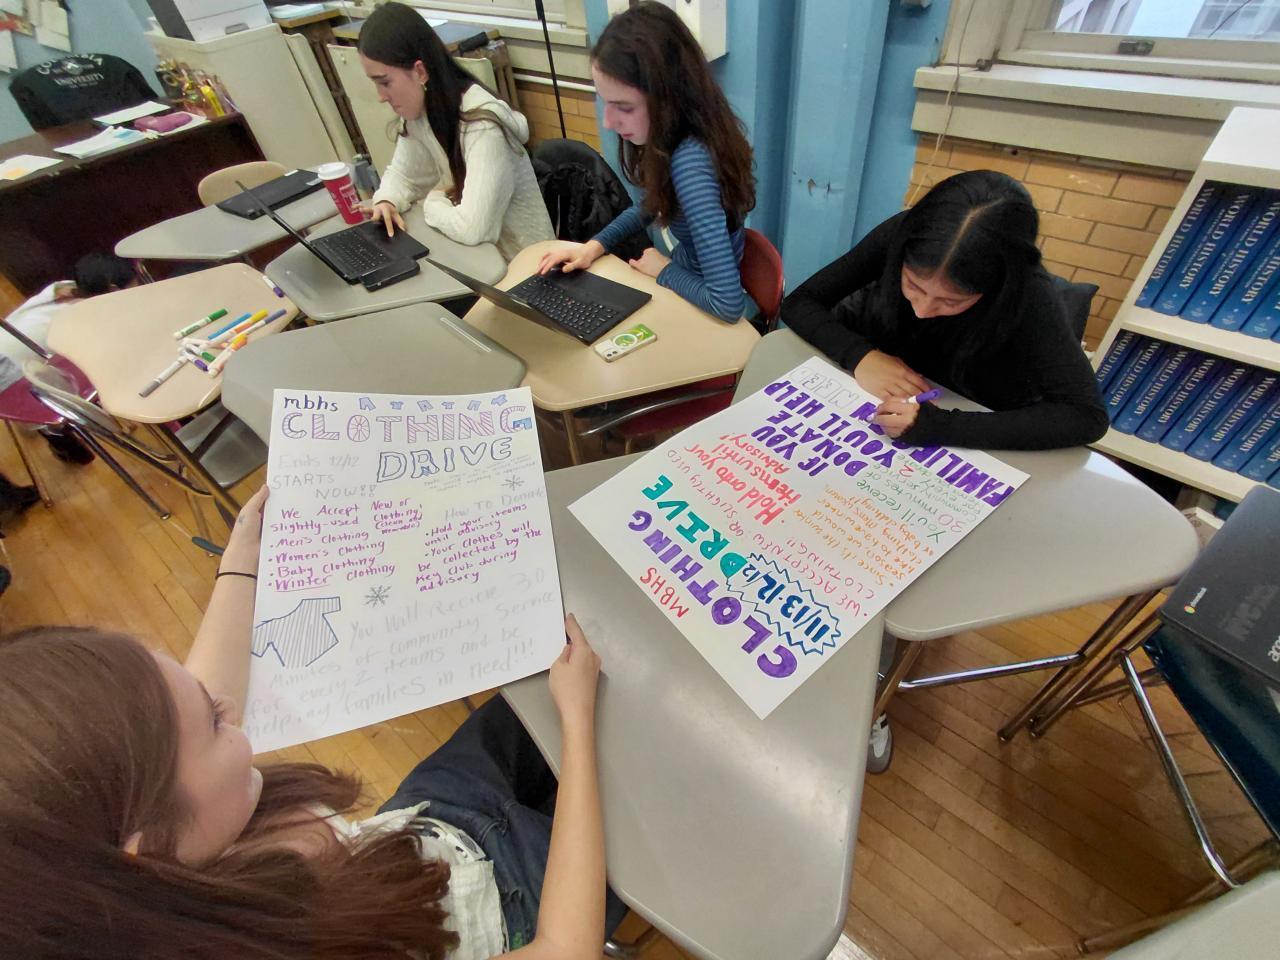 UNIVERSITY
mbhs
CLOTHING
DRIVE
Ends 12/12
STARTS
NOW!!
We Accept New or
slightly-used clothing:
(clean and
wearable)
• Men's clothing
• Women's clothing
• Baby clothing
• Winter clothing
How To Donate
• Hold your items
until advisory
• Your clothes will
be collected by the
Key Club during
advisory
You Will Recieve 30
Minutes of community Service
for every 2 items and be
helping families in need!!!
MBHS
CLOTHING
DRIVE
11/13-12/12
• WE ACCEPT NEW OR SLIGHTLY USED
CLOTHING!!
• Since it's the winter
season, we would
like to have
Hold onto your
items until
Advisory!
You'll receive
30 minutes of
community service
for every 2
IF YOU
DONATE
YOU'LL HELP
FAMILIES IN
NEED
WORLD HISTORY
WORLD HISTORY
WORLD HISTORY
WORLD HISTORY